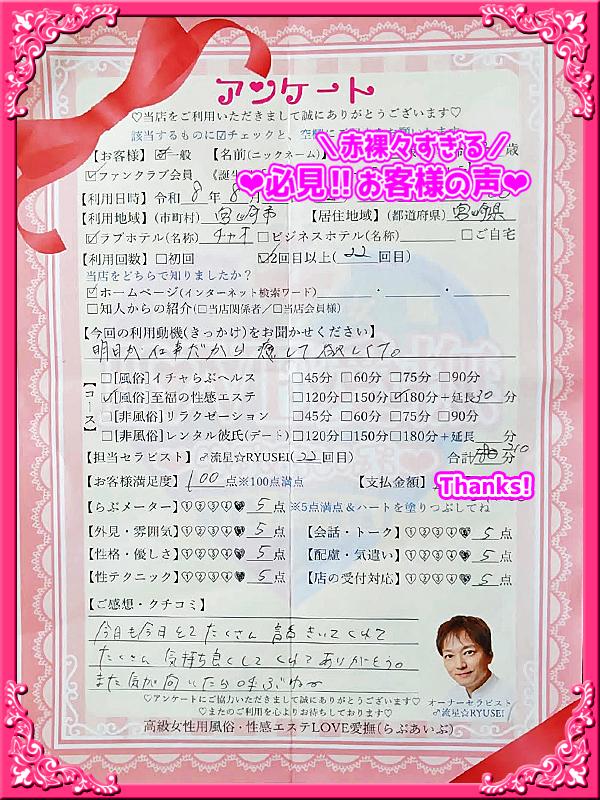 アンケート
♡当店をご利用いただきまして誠にありがとうございます♡
該当するものに☑チェックと、空欄に
＼赤裸々すぎる／
❤必見!!お客様の声❤
【お客様】☑一般 【名前(ニックネーム) 歳
☑ファンクラブ会員 《誕生
【利用日時】令和 8 年 8 月
【利用地域】(市町村) 宮崎市 【居住地域】(都道府県) 宮崎県
☑ラブホテル(名称) チャオ □ビジネスホテル(名称) □ご自宅
【利用回数】□初回 ☑2回目以上(22回目)
当店をどちらで知りましたか？
☑ホームページ(インターネット検索ワード) ・ ・
□知人からの紹介(□当店関係者／□当店会員様)
【今回の利用動機(きっかけ)をお聞かせください】
明日が仕事だから癒して欲しくて。
【コース】
□[風俗]イチャらぶヘルス □45分 □60分 □75分 □90分
☑[風俗]至福の性感エステ □120分 □150分 ☑180分＋延長30分
□[非風俗]リラクゼーション □45分 □60分 □75分 □90分
□[非風俗]レンタル彼氏(デート) □120分 □150分 □180分＋延長 分
【担当セラピスト】♂流星☆RYUSEI(22回目) 合計 210 分
【お客様満足度】100点※100点満点 【支払金額】
Thanks!
【らぶメーター】♡1♡2♡3♡4♥ 5点 ※5点満点＆ハートを塗りつぶしてね
【外見・雰囲気】♡1♡2♡3♡4♥ 5点 【会話・トーク】♡1♡2♡3♡4♥ 5点
【性格・優しさ】♡1♡2♡3♡4♥ 5点 【配慮・気遣い】♡1♡2♡3♡4♥ 5点
【性テクニック】♡1♡2♡3♡4♥ 5点 【店の受付対応】♡1♡2♡3♡4♥ 5点
【ご感想・クチコミ】
今日も今日とてたくさん きいてくれて
たくさん気持ち良くしてくれてありがとう。
また気が向いたら呼ぶね〜
♡アンケートにご協力いただきまして誠にありがとうございます♡
♡またのご利用を心よりお待ちしております♡
オーナーセラピスト
♂流星☆RYUSEI
高級女性用風俗・性感エステLOVE愛撫(らぶあいぶ)